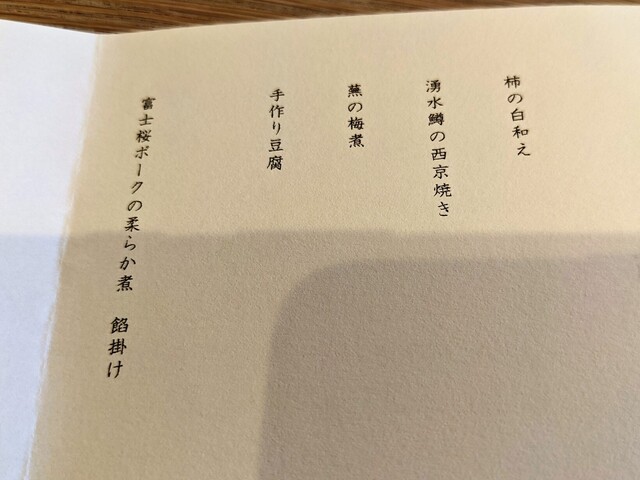 柿の白和え
湧水鱒の西京焼き
蕪の梅煮
手作り豆腐
富士桜ポークの柔らか煮　餡掛け